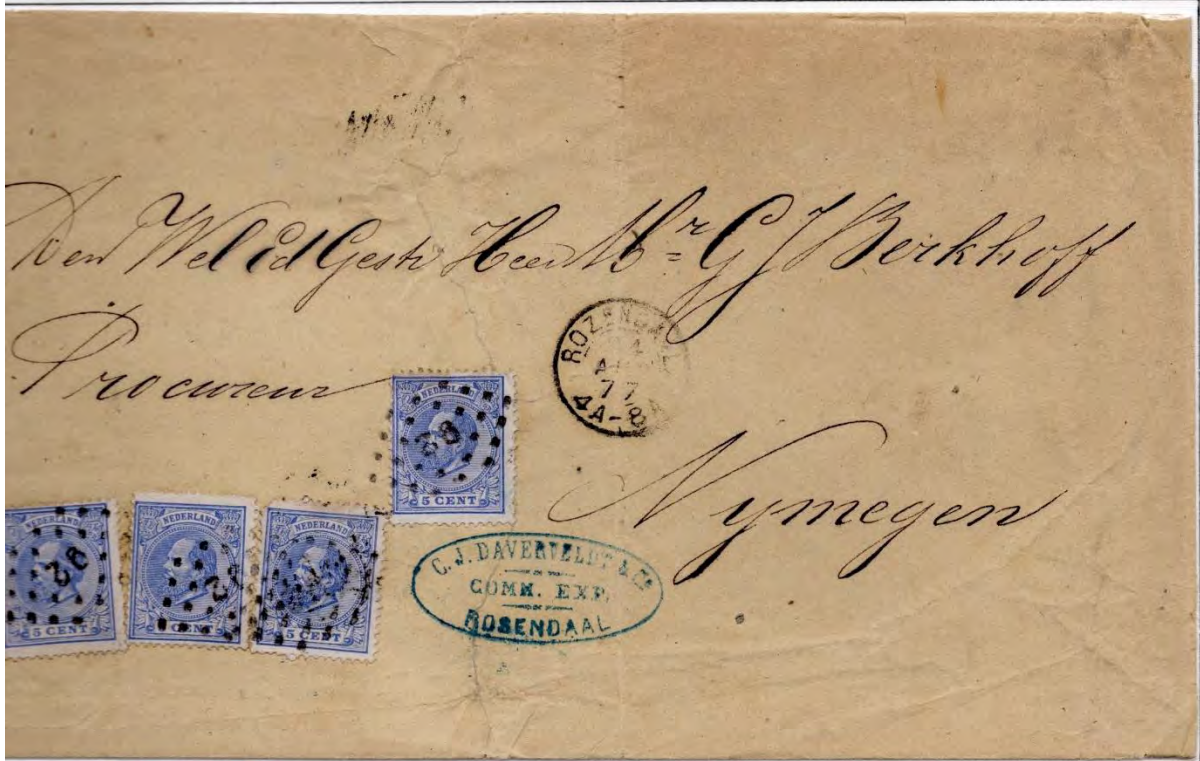 Den Wel Ed Gestr Heer Mr G J Berkhoff
Procureur
ROZENDAAL
4A-8A
77
Nymegen
NEDERLAND
5 CENT
NEDERLAND
5 CENT
NEDERLAND
5 CENT
NEDERLAND
5 CENT
C. J. DAVERVELDT & Co
COMM. EXP.
ROSENDAAL